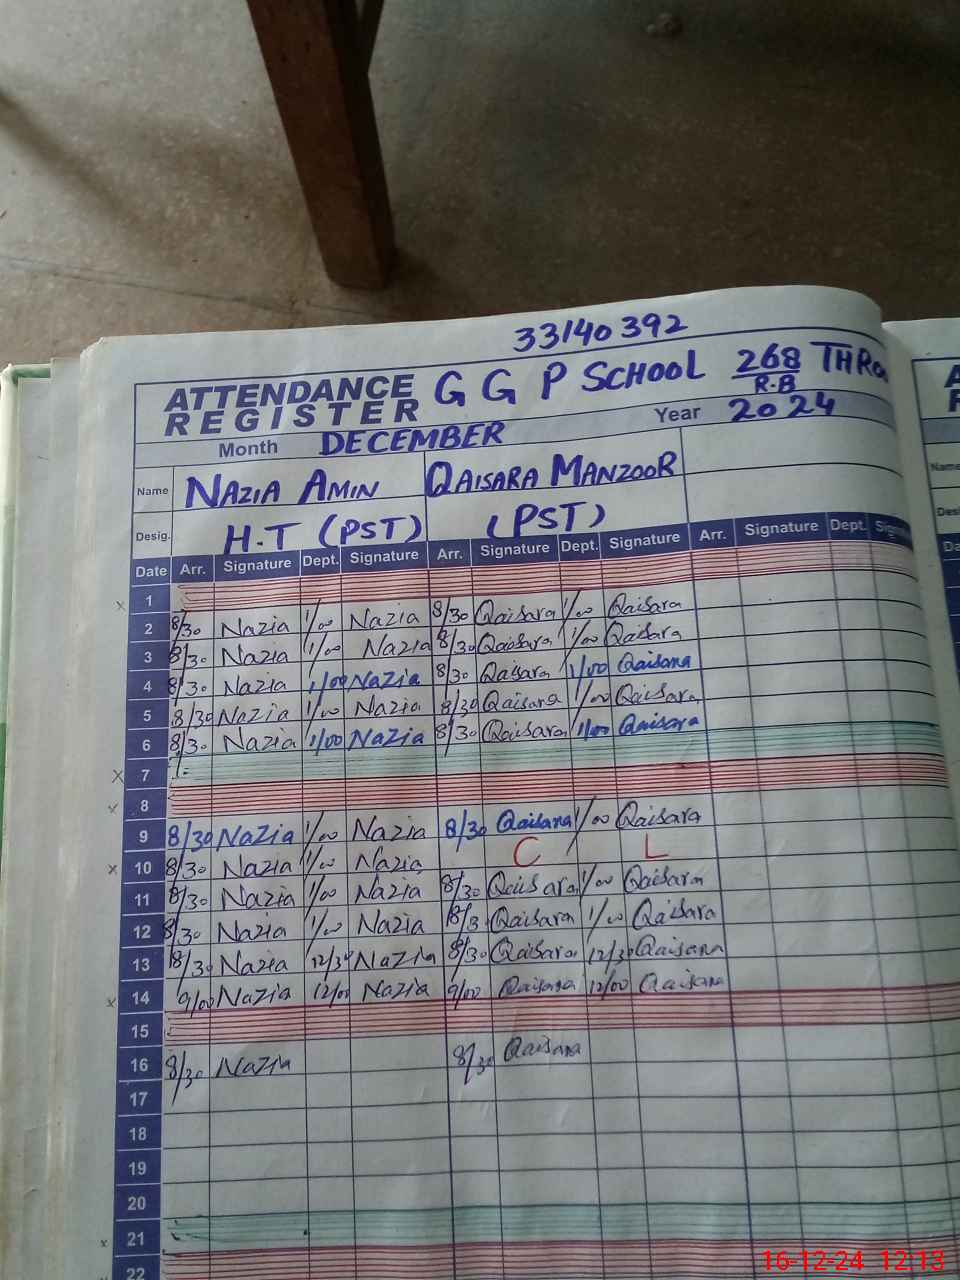 33140392
ATTENDANCE REGISTER G G P SCHOOL 268 R.B
Month DECEMBER Year 2024
Name NAZIA AMIN QAISARA MANZOOR
Desig. H.T (PST) (PST)
Date Arr. Signature Dept. Signature Arr. Signature Dept. Signature Arr. Signature Dept.
1
2 8/30 Nazia 1/00 Nazia 8/30 Qaisara 1/00 Qaisara
3 8/30 Nazia 1/00 Nazia 8/30 Qaisara 1/00 Qaisara
4 8/30 Nazia 1/00 Nazia 8/30 Qaisara 1/00 Qaisara
5 8/30 Nazia 1/00 Nazia 8/30 Qaisara 1/00 Qaisara
6 8/30 Nazia 1/00 Nazia 8/30 Qaisara 1/00 Qaisara
7
8
9 8/30 Nazia 1/00 Nazia 8/30 Qaisara 1/00 Qaisara
10 8/30 Nazia 1/00 Nazia C L
11 8/30 Nazia 1/00 Nazia 8/30 Qaisara 1/00 Qaisara
12 8/30 Nazia 1/00 Nazia 8/3 Qaisara 1/00 Qaisara
13 8/30 Nazia 12/30 Nazia 8/30 Qaisara 12/30 Qaisara
14 9/00 Nazia 12/00 Nazia 9/00 Qaisara 12/00 Qaisara
15
16 8/30 Nazia 8/30 Qaisara
17
18
19
20
21
22
16-12-24 12:13